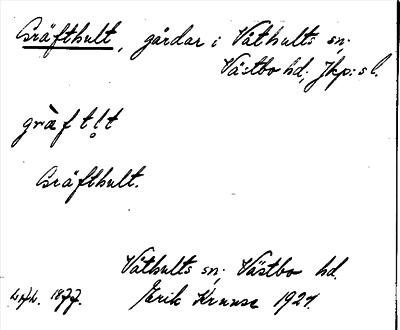 Gräfthult, gårdar i Våthults sn;
Västbo hd, Jkp:s l.
grȁf tl̥t
Gräfthult.
Våthults sn; Västbo hd.
1877. Erik Kruuse 1921.